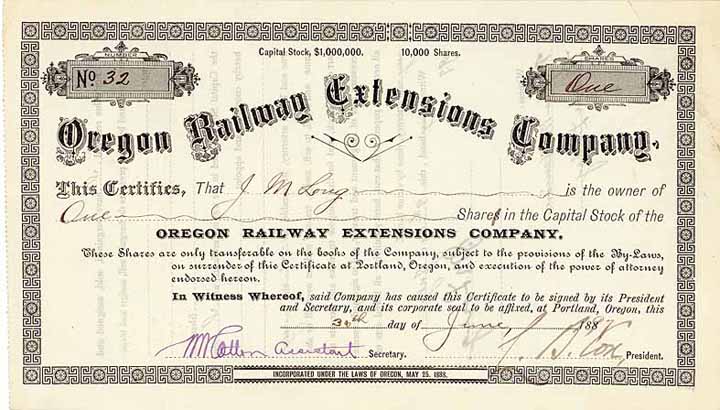 NUMBER
No 32
Capital Stock, $1,000,000. 10,000 Shares.
SHARES
One
Oregon Railway Extensions Company.
This Certifies, That J. M Long is the owner of
One Shares in the Capital Stock of the
OREGON RAILWAY EXTENSIONS COMPANY.
These Shares are only transferable on the books of the Company, subject to the provisions of the By-Laws,
on surrender of this Certificate at Portland, Oregon, and execution of the power of attorney
endorsed hereon.
In Witness Whereof, said Company has caused this Certificate to be signed by its President
and Secretary, and its corporate seal to be affixed, at Portland, Oregon, this
30th day of June, 188
Assistant Secretary. President.
INCORPORATED UNDER THE LAWS OF OREGON, MAY 25, 1888.